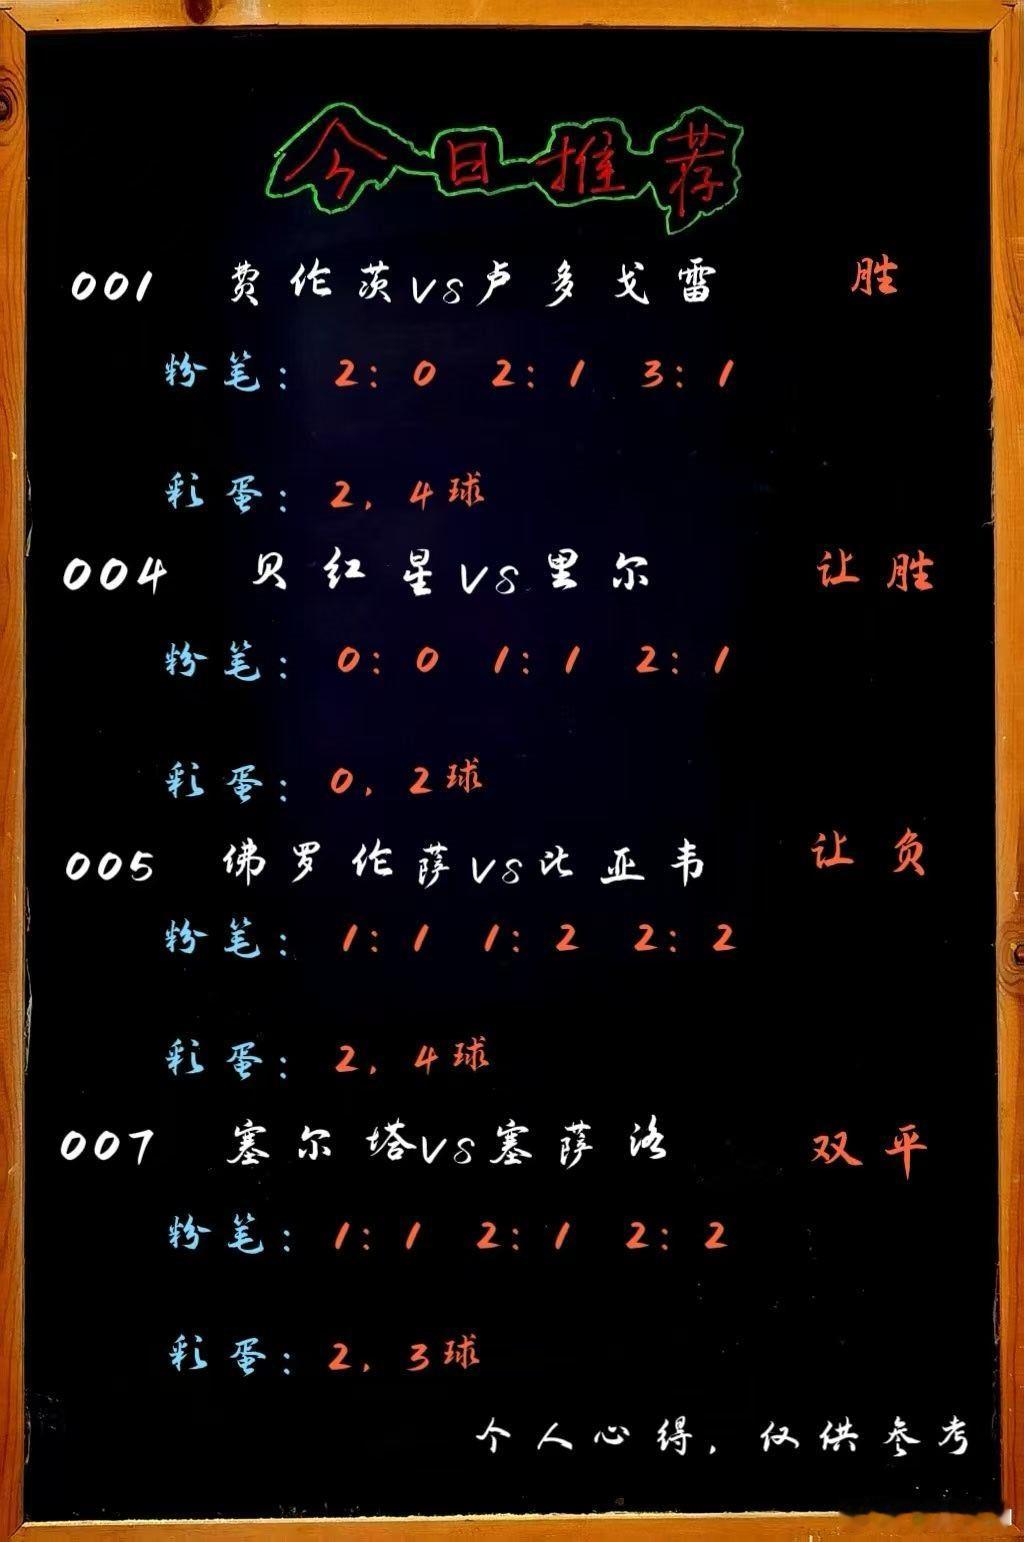 今日推荐
001 费伦茨VS卢多戈雷 胜
粉笔：2：0 2：1 3：1
彩蛋：2，4球
004 贝红星VS里尔 让胜
粉笔：0：0 1：1 2：1
彩蛋：0，2球
005 佛罗伦萨VS比亚韦 让负
粉笔：1：1 1：2 2：2
彩蛋：2，4球
007 塞尔塔VS塞萨洛 双平
粉笔：1：1 2：1 2：2
彩蛋：2，3球
个人心得，仅供参考